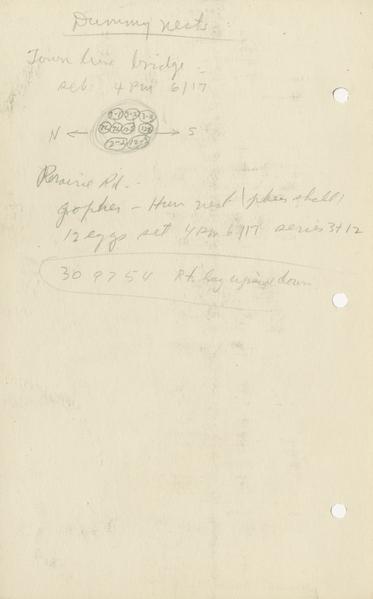 Dummy nests
Town line bridge
set 4 PM 6/17
N S
Prairie Rd.
gopher - Hun nest
12 eggs set 4 PM 6/17 series 3+12
309754 Rt. leg upside down